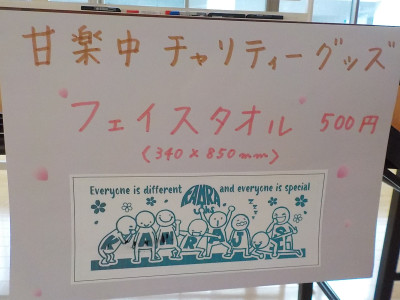 甘楽中 チャリティーグッズ
フェイスタオル 500円
(340×850mm)
Everyone is different KANRA and everyone is special
KANRAJH